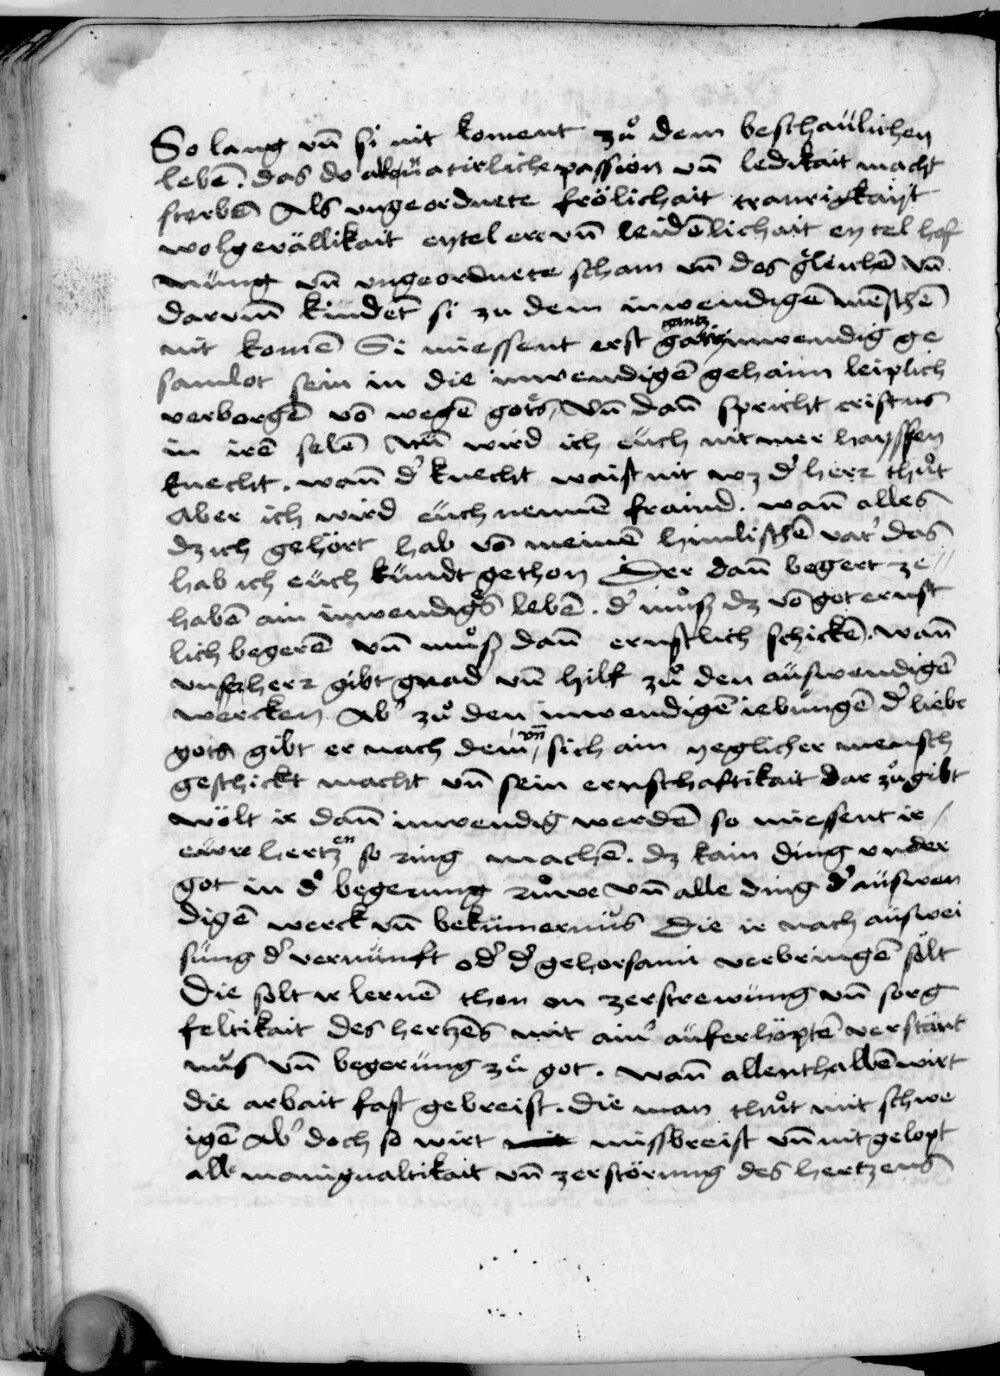 So lang vn̄ si nit koment zů dem beschaulichen
lebē. das do alle natirliche passion vn̄ ledikait macht
sterbē Als vngeordnete frölichait traurikayt
wolgevällikait eytel ere vn̄ leidēlichait eytel hof
nung vn̄ vngeordnete scham vn̄ des gleichē vn̄
darum̄ kindēt si zu dem inwendigē mēschē
nit komē Si miessent erst gantz inwendig ge
samlot sein in die inwendigē gehaim leiplich
verborgē vō wegē gots, vn̄ dan̄ spricht cristus
in irē selē Nun̄ wird ich euch nit mer hayssen
knecht. wan̄ d' knecht waist nit wz d' herr thůt
Aber ich wird euch nennē fraind. wan̄ alles
dz ich gehört hab vō meinē himlischē vat' das
hab ich euch kundt gethon Der dan̄ begert ze
habē ain inwendigs lebē. d' můß dz vō got ernst
lich begerē vn̄ můß dan̄ ernstlich schickē. wan̄
vnser herr gibt gnad vn̄ hilf zů den auswendigē
wercken Ab' zů den inwendigē iebungē d' liebe
gots gibt er nach dem vn̄ sich ain yeglicher mensch
geschickt macht vn̄ sein ernschaftikait dar zů gibt
wölt ir dan̄ inwendig werdē so miessent ir
eure hertzen so ring machē. dz kain ding vnder
got in d' begerung růwe vn̄ alle ding d' auswen
digē werck vn̄ bekümernus Die ir nach auswei
sung d' vernunft od' d' gehorsami verbringē sölt
Die solt ir lernē thon on zerstrewung vn̄ sorg
feltikait des hertzēs mit ain' auferhöptē verstant
nus vn̄ begerung zů got. wan̄ allenthalbē wirt
die arbait fast gebreist. die man thůt mit schwe
igē Ab' doch so wirt missbreist vn̄ nit gelopt
alle manigualtikait vn̄ zerstörung des hertzens